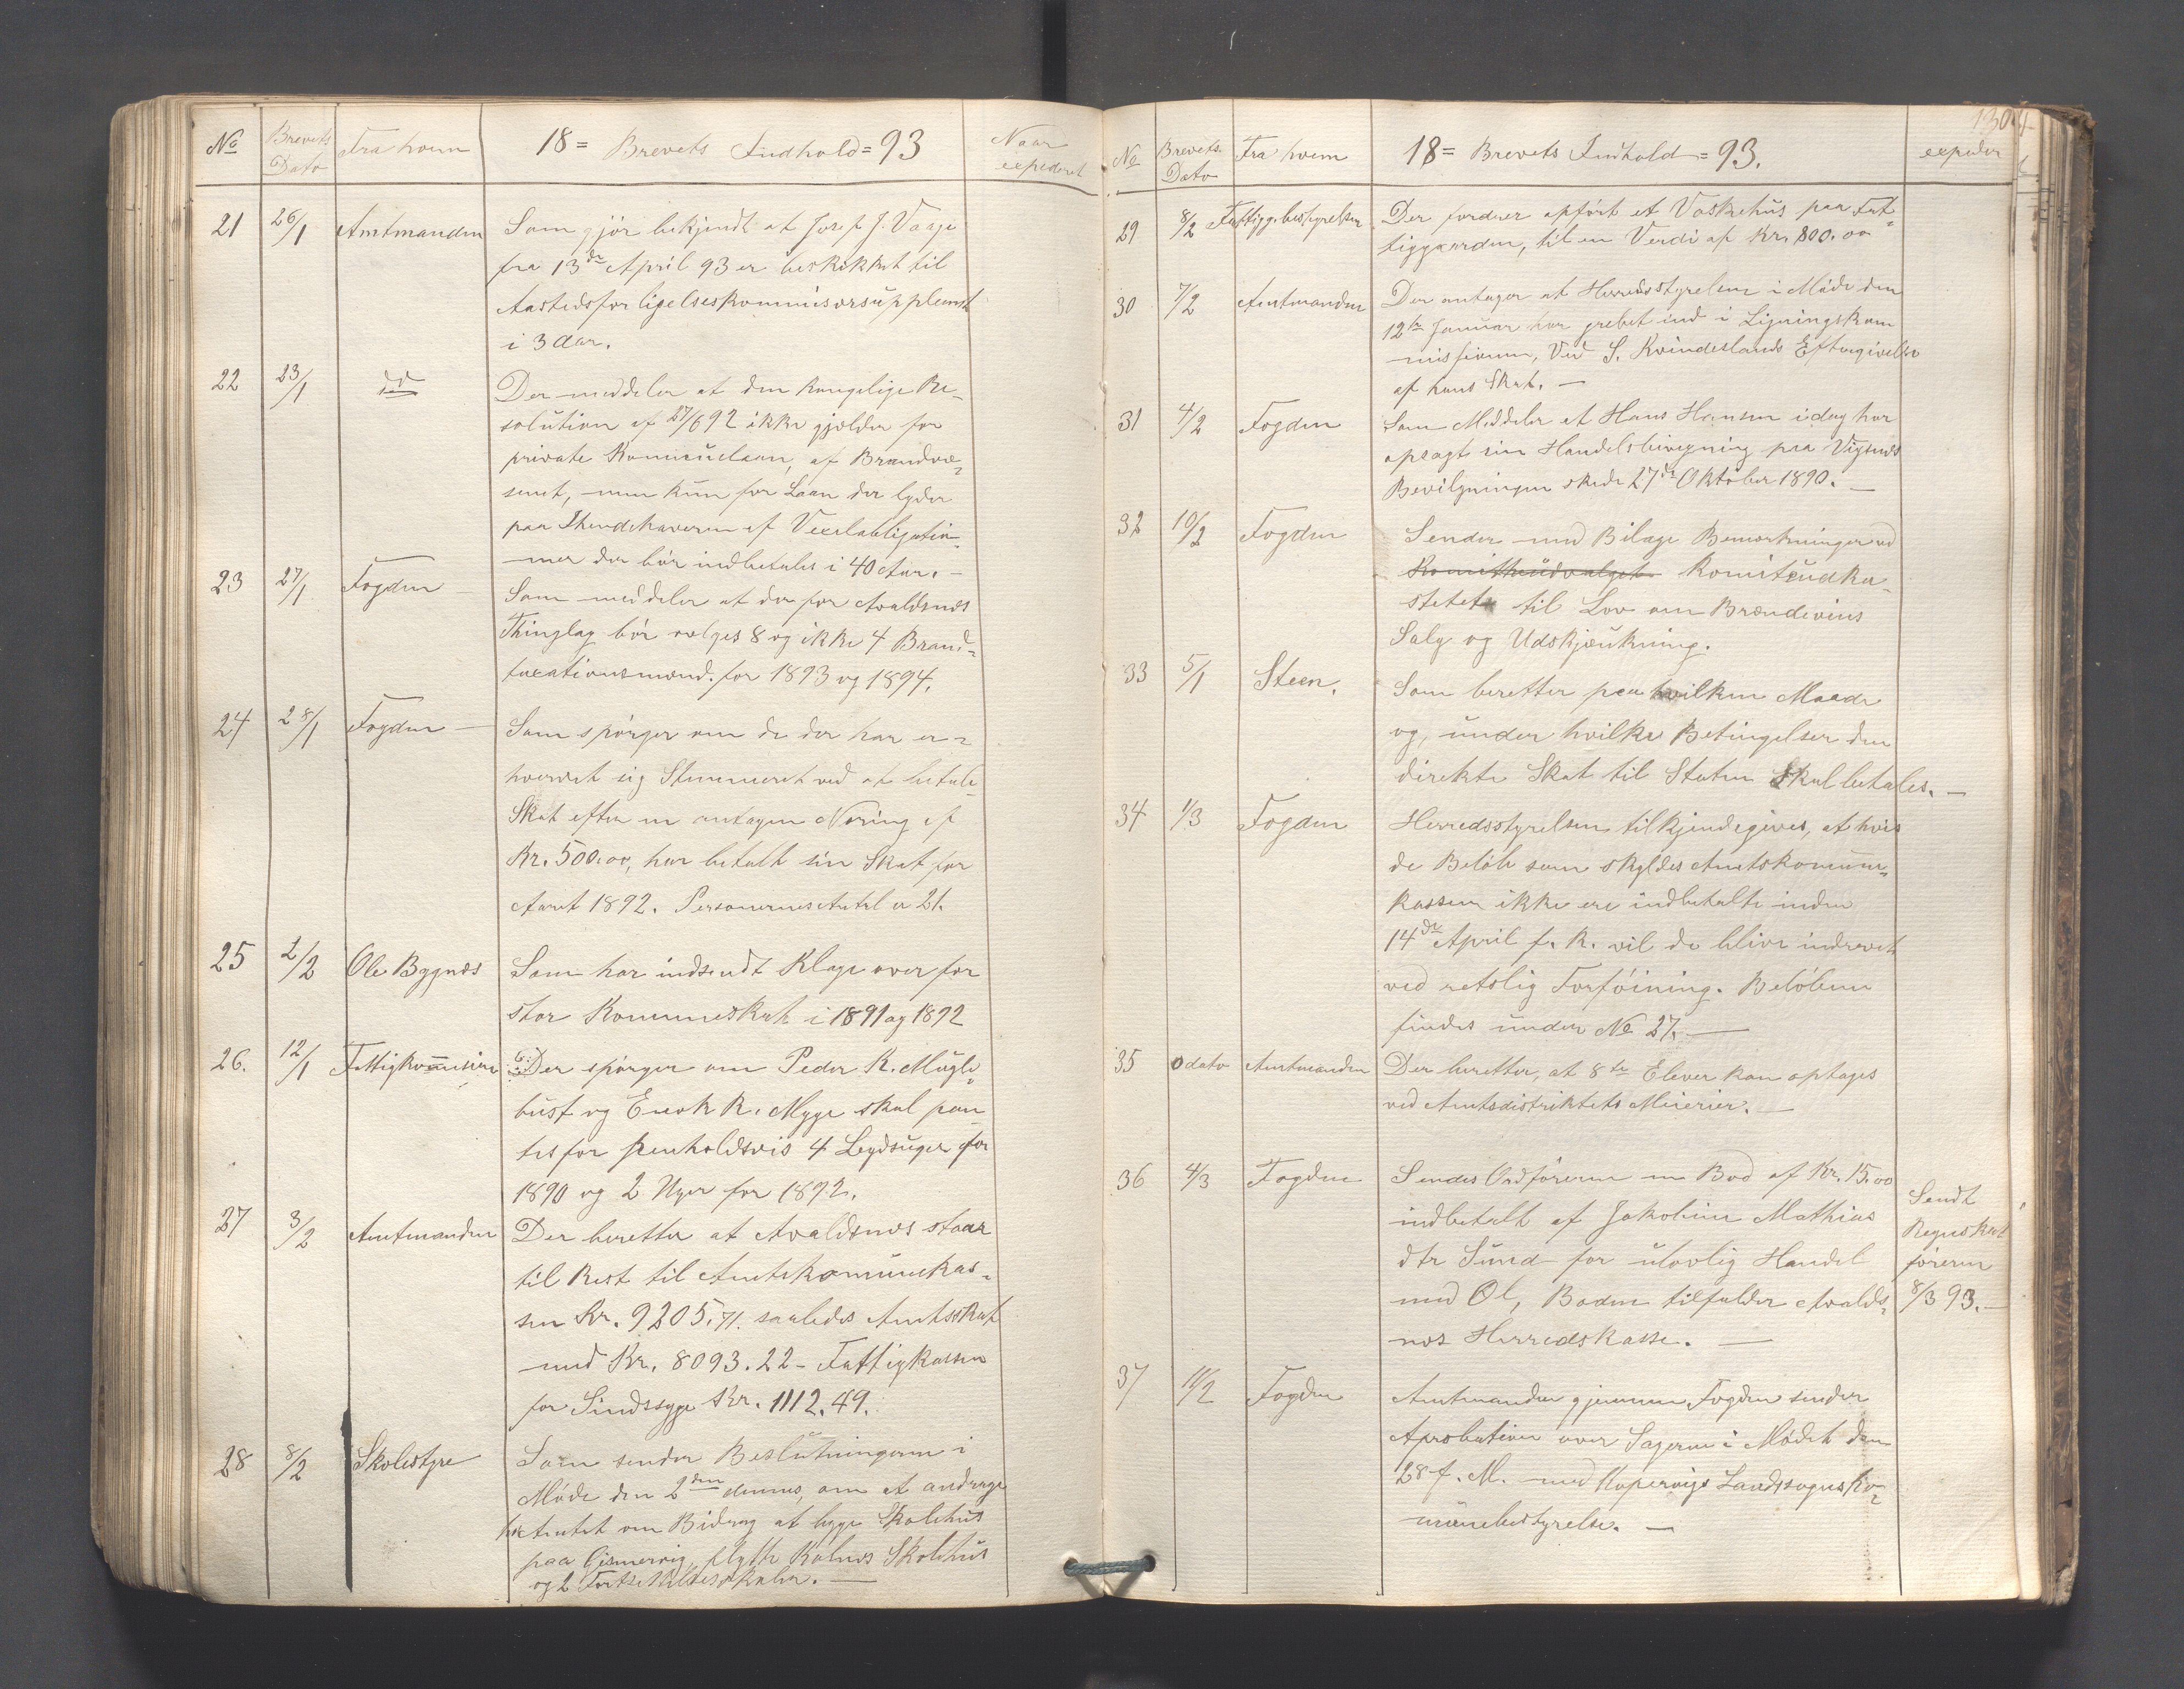 No Brevets Dato Fra hvem 18 = Brevets Indhold = 93 Naar expederet
21 26/1 Amtmanden Som gjør bekjendt at Josef J. Vaage
fra 13de April 93 er beskikket til
Aastedsforligelseskommisærsuppleant
i 3 Aar.
22 23/1 do Der meddeler at den kongelige Re-
solution af 27/6 92 ikke gjælder for
private Kommunelaan, af Brandvæ-
senet, men kun for Laan der lyder
paa Ihendehaveren af Vexelobligatio-
ner der bør indbetales i 40 Aar. -
23 27/1 Fogden Som meddeler at der for Avaldsnæs
Thinglag bør vælges 8 og ikke 4 Brand-
taxationsmænd. for 1893 og 1894.
24 28/1 Fogden - Som spørger om de der har er-
hvervet sig Stemmeret ved at betale
Skat efter en antagen Næring af
Kr. 500.00, har betalt sin Skat for
Aaret 1892. Personernes Antal er 21.
25 2/2 Ole Bygnæs Som har indsendt Klage over for
stor Kommuneskat i 1891 og 1892
26. 12/1 Fattigkommisionen Der spørger om Peder K. Mugle-
bust og Enok K. Myge skal pan-
tes for henholdsvis 4 Legdsuger for
1890 og 2 Uger for 1892.
27 3/2 Amtmanden Der beretter at Avaldsnæs staar
til Rest til Amtskomunekas-
sen Kr. 9205.71. saaledes Amtsskat
med Kr. 8093.22 - Fattigkassen
for Sindssyge Kr. 1112.49.
28 8/2 Skolestyre Som sender Beslutningerne i
Møde den 2den dennes, om at andrage
hos Amtet om Bidrag at bygge Skolehus
paa Gismervig, flytte Kolnes Skolehus
og 2 Fortsettelsesskoler. -
130
No Brevets Dato Fra hvem 18 = Brevets Indhold = 93. expeder
29 8/2 Fattiggbestyrelsen Der fordrer opført et Vaskehus paa Fat-
tiggaarden, til en Verdi af Kr. 800.00
30 7/2 Amtmanden Der antager at Herredsstyrelsen i Møde den
12te Januar har grebet ind i Ligningskom
missionen, Ved S. Kvindeslands Eftergivelse
af hans Skat. -
31 4/2 Fogden Som Meddeler at Hans Hansen idag har
opsagt sin Handelsbevegning paa Vigsnæs
Bevilgningen skede 27de Oktober 1890. -
32 10/2 Fogden Sender med Bilage Bemerkninger ved
Komitheudvalget Komiteudka-
stetet til Lov om Brændevins
Salg og Udskjænkning.
33 5/1 Steen. Som beretter paa hvilken Maade
og, under hvilke Betingelser den
direkte Skat til Staten skal betales. -
34 1/3 Fogden Herredsstyrelsen tilkjendegives, at hvis
de Beløb som skyldes Amtskommune-
kassen ikke ere indbetalte inden
14de April f. K. vil de blive indrevet
ved retslig Forføining. Beløbene
findes under No 27. -
35 0 dato Amtmanden Der beretter, at 8te Elever kan optages
ved Amtsdistriktets Meierier. -
36 4/3 Fogden Sendes Ordføreren en Bod af Kr. 15.00
indbetalt af Jakobine Mathias
dtr Sund for ulovlig Handel
med Øl, Boden tilfalder Avalds-
næs Herredskasse. -
Sendt
Regnskab
føreren
8/3 93. -
37 11/2 Fogden Amtmanden gjennem Fogden sender
Aprobation over Sagerne i Mødet den
28 f. M. med Kopervigs Landssogns Ko-
munebestyrelse. -